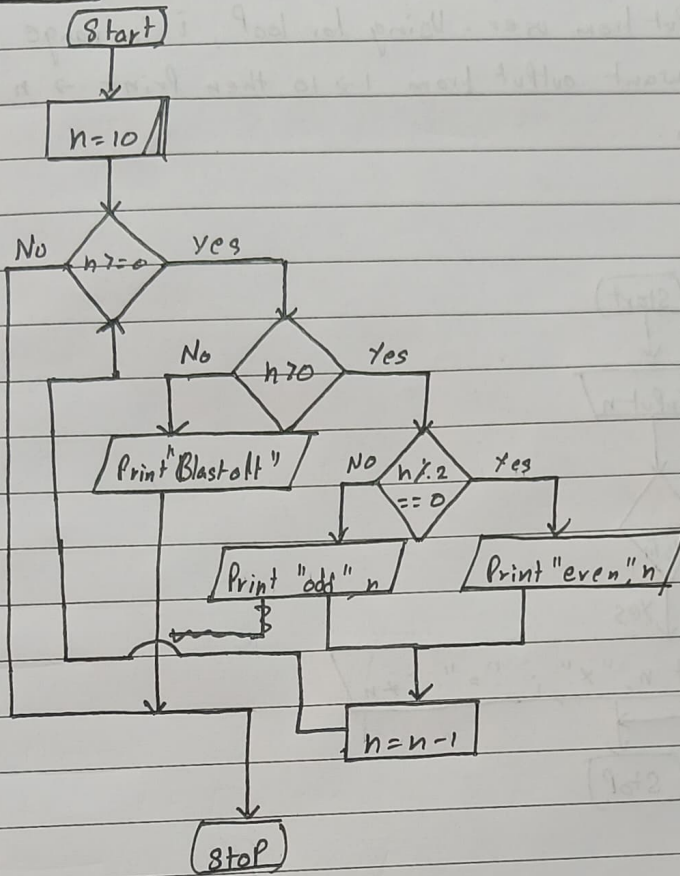 Start
n=10
No
Yes
n>=0
No
Yes
n>0
Print "Blastoff"
No
Yes
n%2
==0
Print "odd" n
Print "even", n
n=n-1
Stop